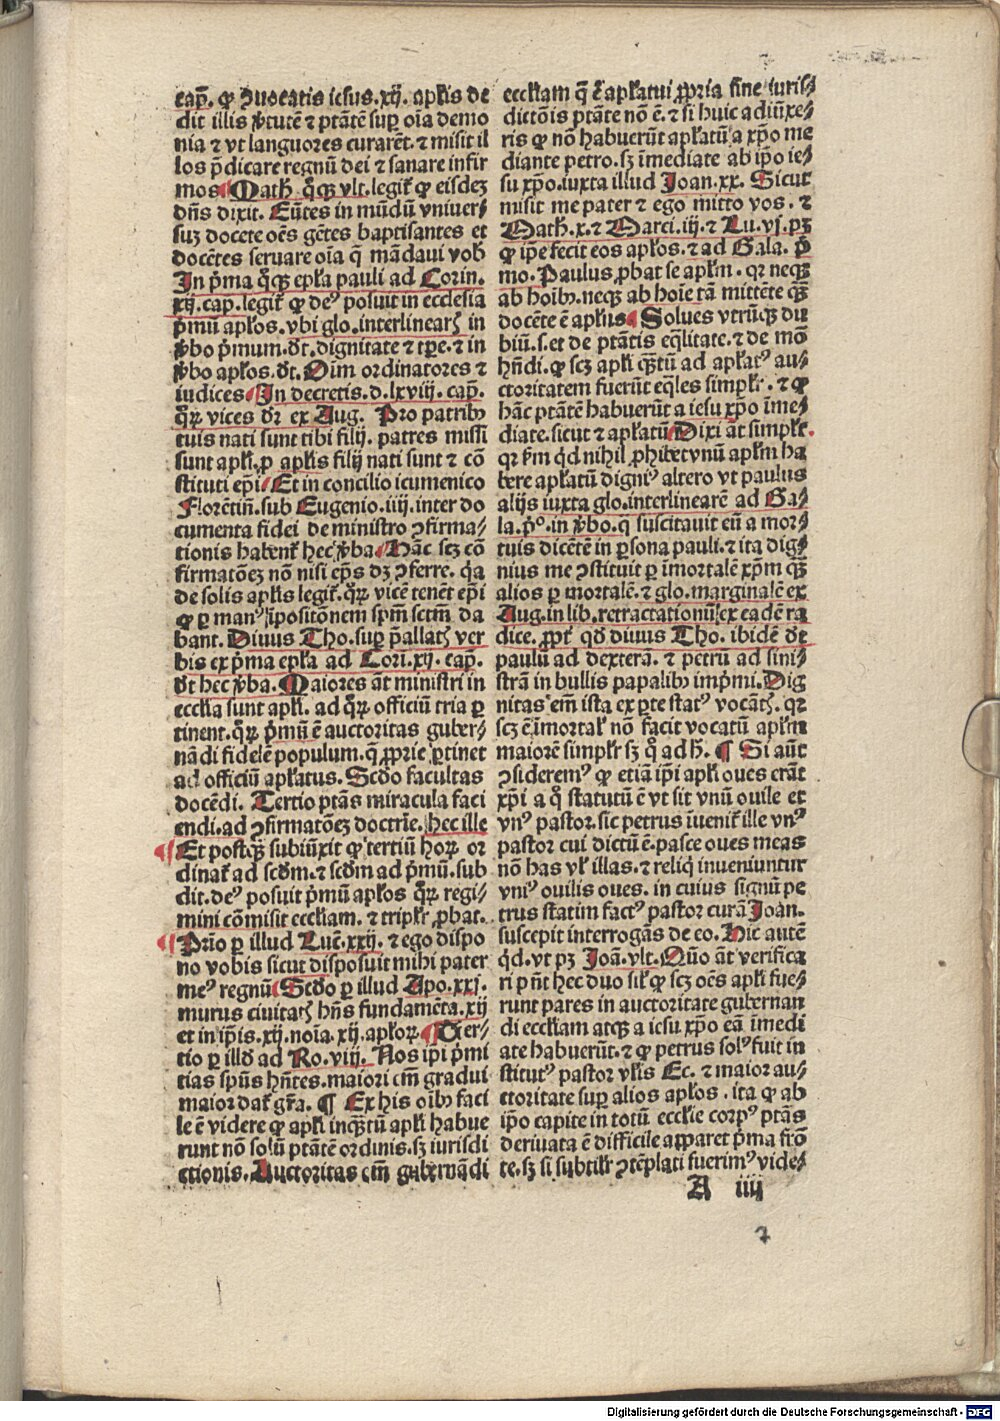 cap̄. ꝙ ꝯuocatis iesus.xij. apƚis de
dit illis ꝟtutē ⁊ ptātē suꝑ oīa demo
nia ⁊ vt languores curarēt.⁊ misit il
los p̄dicare regnū dei ⁊ sanare infir
mos Math̄. qͦꝫ vlt.legit̄ ꝙ eisdeꝫ
dn̄s dixit. Eūtes in mūdū vniuer⸗
suꝫ docete oēs gētes baptisantes et
docētes seruare oīa q̄ mādaui vob̄
In p̄ma qͦꝫ epƚa pauli ad Corin.
xij.cap̄.legit̄ ꝙ deꝰ posuit in ecclesia
p̄mū apƚos.vbi glo.interlinearꝭ in
ꝟbo p̄mum.ƌt.dignitate ⁊ tꝑe.⁊ in
ꝟbo apƚos.ƌt.Oīm ordinatores ⁊
iudices In decretis.d.lxviij. cap̄.
qͦꝝ vices dr̄ ex Aug. Pro patribꝰ
tuis nati sunt tibi filij. patres missi
sunt apƚi.ꝓ apƚis filij nati sunt ⁊ cō
stituti ep̄i Et in concilio icumenico
Florētin̄.sub Eugenio.iiij.inter do
cumenta fidei de ministro ꝯfirma⸗
tionis habent̄ hec ꝟba Hāc scꝫ cō
firmatōeꝫ nō nisi ep̄s dꝫ ꝯferre. q̇a
de solis apƚis legit̄.qͦꝝ vicē tenēt ep̄i
ꝙ ꝑ manꝰ īpositōnem sp̄m sctm̄ da
bant. Diuus Tho.suꝑ p̄allatꝭ ver
bis ex p̄ma epƚa ad Cori.xij. cap̄.
ƌt hec ꝟba. Maiores āt ministri in
eccƚia sunt apƚi. ad qͦꝝ officiū tria ꝑ
tinent.qͦꝝ p̄mū ē auctoritas guber⸗
nādi fidelē populum.q̄ ꝓprie ꝑtinet
ad officiū apƚatus. Scdo facultas
docēdi. Tertio ptās miracula faci
endi.ad ꝯfirmatōeꝫ doctrīe. hec ille
Et postqꝫ̄ subiūxit ꝙ tertiū hoꝝ or
dinat̄ ad scdm̄.⁊ scdm̄ ad p̄mū.sub
dit.deꝰ posuit p̄mū apƚos qͦꝝ regi⸗
mini cōmisit eccƚiam. ⁊ tripƚr ꝓbat.
Prīo ꝑ illud Luc̄.xxij. ⁊ ego dispo
no vobis sicut disposuit mihi pater
meꝰ regnū Scdo ꝑ illud Apo.xxj.
murus ciuitatꝭ hn̄s fundamēta.xij
et in ip̄is.xij.noīa.xij.apƚoꝝ. Ter⸗
tio ꝑ illd ad Ro.viij. Nos ip̄i p̄mi
tias spūs hn̄tes.maiori em̄ gradui
maior dat̄ gr̄a. ¶ Ex his oībꝰ faci
le ē videre ꝙ apƚi inqꝫ̄tū apƚi habue
runt nō solū ptātē ordinis.sꝫ iurisdi
ctionis. Auctoritas em̄ gubernādi
eccƚiam q̄ ē apƚatui ꝓpria sine iuris⸗
dictōis ptāte nō ē.⁊ si huic adiūxe⸗
ris ꝙ nō habuerūt apƚatū a xp̄o me
diante petro.sꝫ īmediate ab ip̄o ie⸗
su xp̄o.iuxta illud Joan.xx. Sicut
misit me pater ⁊ ego mitto vos. ⁊
Math̄.x.⁊ Marci.iij.⁊ Lu.vj.pꝫ
ꝙ ip̄e fecit eos apƚos.⁊ ad Gala. p̄
mo. Paulus ꝓbat se apƚm. qꝛ neqꝫ
ab hoībꝰ.neqꝫ ab hoīe tā mittēte qꝫ̄
docēte ē apƚus Solues vtrūqꝫ du
biū.s.et de ptātis eq̄litate.⁊ de mō
hn̄di.ꝙ scꝫ apƚi qꝫ̄tū ad apƚatꝰ au⸗
ctoritatem fuerūt eq̄les simpƚr.⁊ ꝙ
hāc ptātē habuerūt a iesu xp̄o īme⸗
diate.sicut ⁊ apƚatū Dixi āt simpƚr.
qꝛ ẜm qd nihil ꝓhibet vnū apƚm ha
bere apƚatū digniꝰ altero vt paulus
alijs iuxta glo.interlinearē ad Ga⸗
la.p̄ͦ.in ꝟbo.q̇ suscitauit eū a mor⸗
tuis dicētē in ꝑsona pauli.⁊ ita dig⸗
nius me ꝯstituit ꝑ īmortalē xp̄m qꝫ̄
alios ꝑ mortalē.⁊ glo.marginalē ex
Aug.in lib.retractationū ex eadē ra
dice. ꝓpt̄ qd diuus Tho. ibidē ƌt
paulū ad dexterā. ⁊ petrū ad sini⸗
strā in bullis papalibꝰ imp̄mi. Dig
nitas em̄ ista ex ꝑte statꝰ vocātꝭ. qꝛ
scꝫ ē īmortal̄ nō facit vocatū apƚm
maiorē simpƚr sꝫ qͦ ad h̄. ¶ Si aūt
ꝯsideremꝰ ꝙ etiā ip̄i apƚi oues erāt
xp̄i a qͦ statutū ē vt sit vnū ouile et
vnꝰ pastor.sic petrus īuenit̄ ille vnꝰ
pastor cui dictū ē.pasce oues meas
nō has vƚ illas.⁊ reliq̄ inueniuntur
vniꝰ ouilis oues. in cuius signū pe
trus statim factꝰ pastor curā Joan.
suscepit interrogās de eo. Hic autē
qd.vt pꝫ Joā.vlt. Quō āt verifica
ri pn̄t hec duo siƚ ꝙ scꝫ oēs apƚi fue⸗
runt pares in auctoritate gubernan
di eccƚiam atqꝫ a iesu xp̄o eā īmedi
ate habuerūt.⁊ ꝙ petrus solꝰ fuit in
stitutꝰ pastor vƚis Ec. ⁊ maior au⸗
ctoritate suꝑ alios apƚos. ita ꝙ ab
ip̄o capite in totū eccƚie corpꝰ ptās
deriuata ē difficile apparet p̄ma frō
te.sꝫ si subtiƚr ꝯtēplati fuerimꝰ vide⸗
A iiij
7
Digitalisierung gefördert durch die Deutsche Forschungsgemeinschaft - DFG